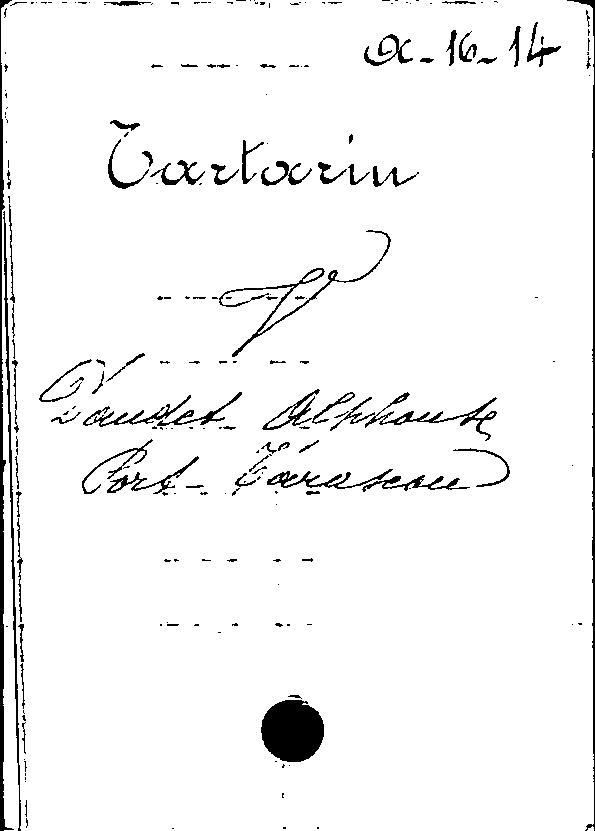 α-16-14
Tartarin
V
Daudet Alphonse
Port-Tarascon